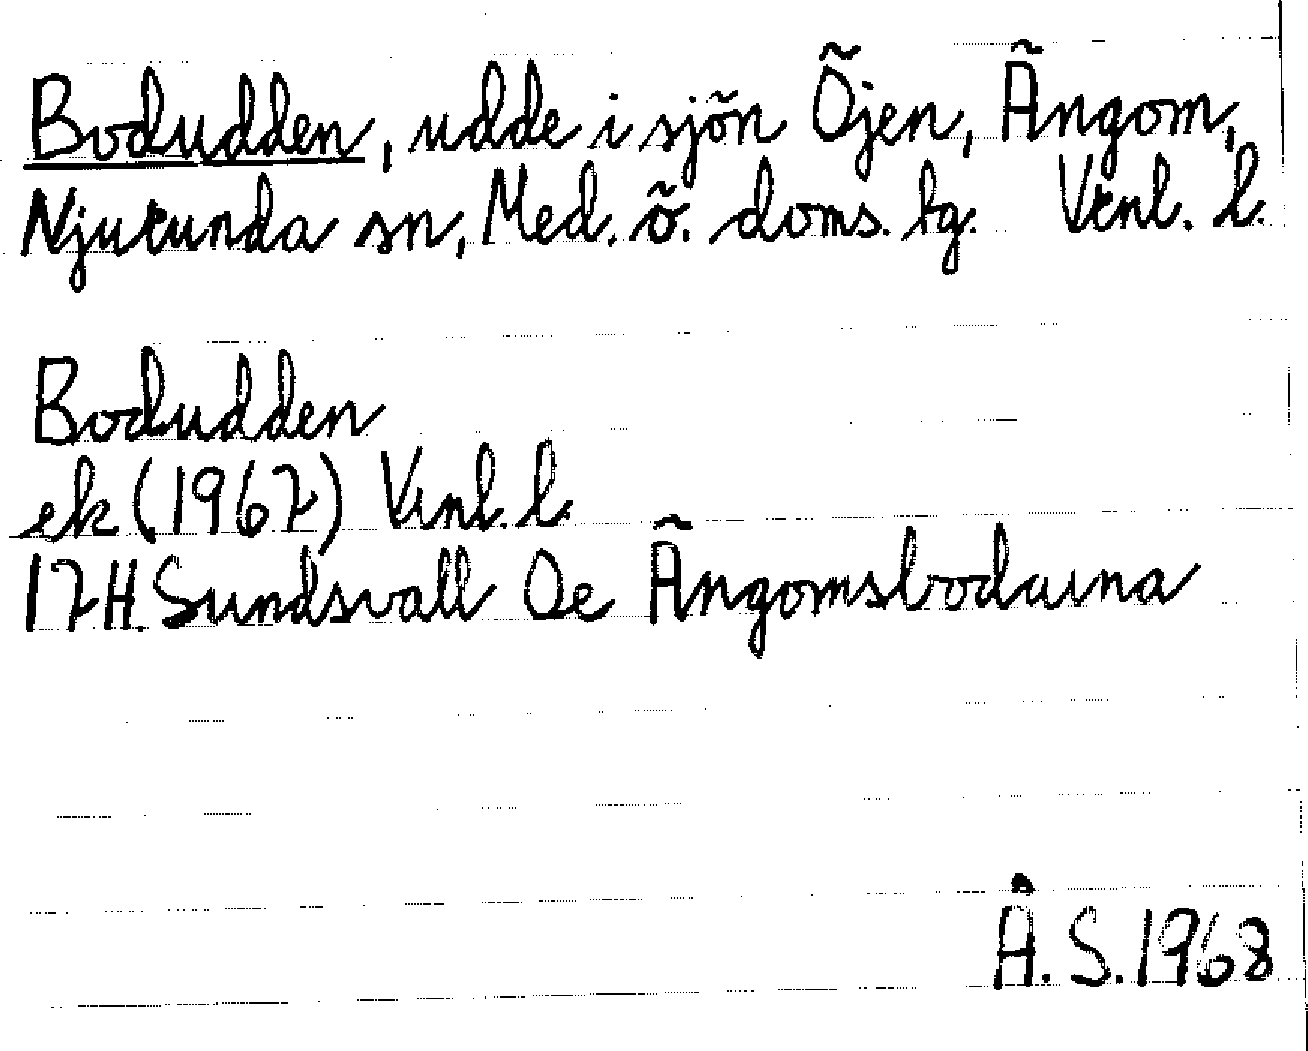 Bodudden, udde i sjön Öjen, Ängom,
Njurunda sn, Med. ö. doms. hg. Vrnl. l.
Bodudden
ek (1967) Vrnl. l.
17H Sundsvall Oe Ängomsbodarna
Å. S. 1968